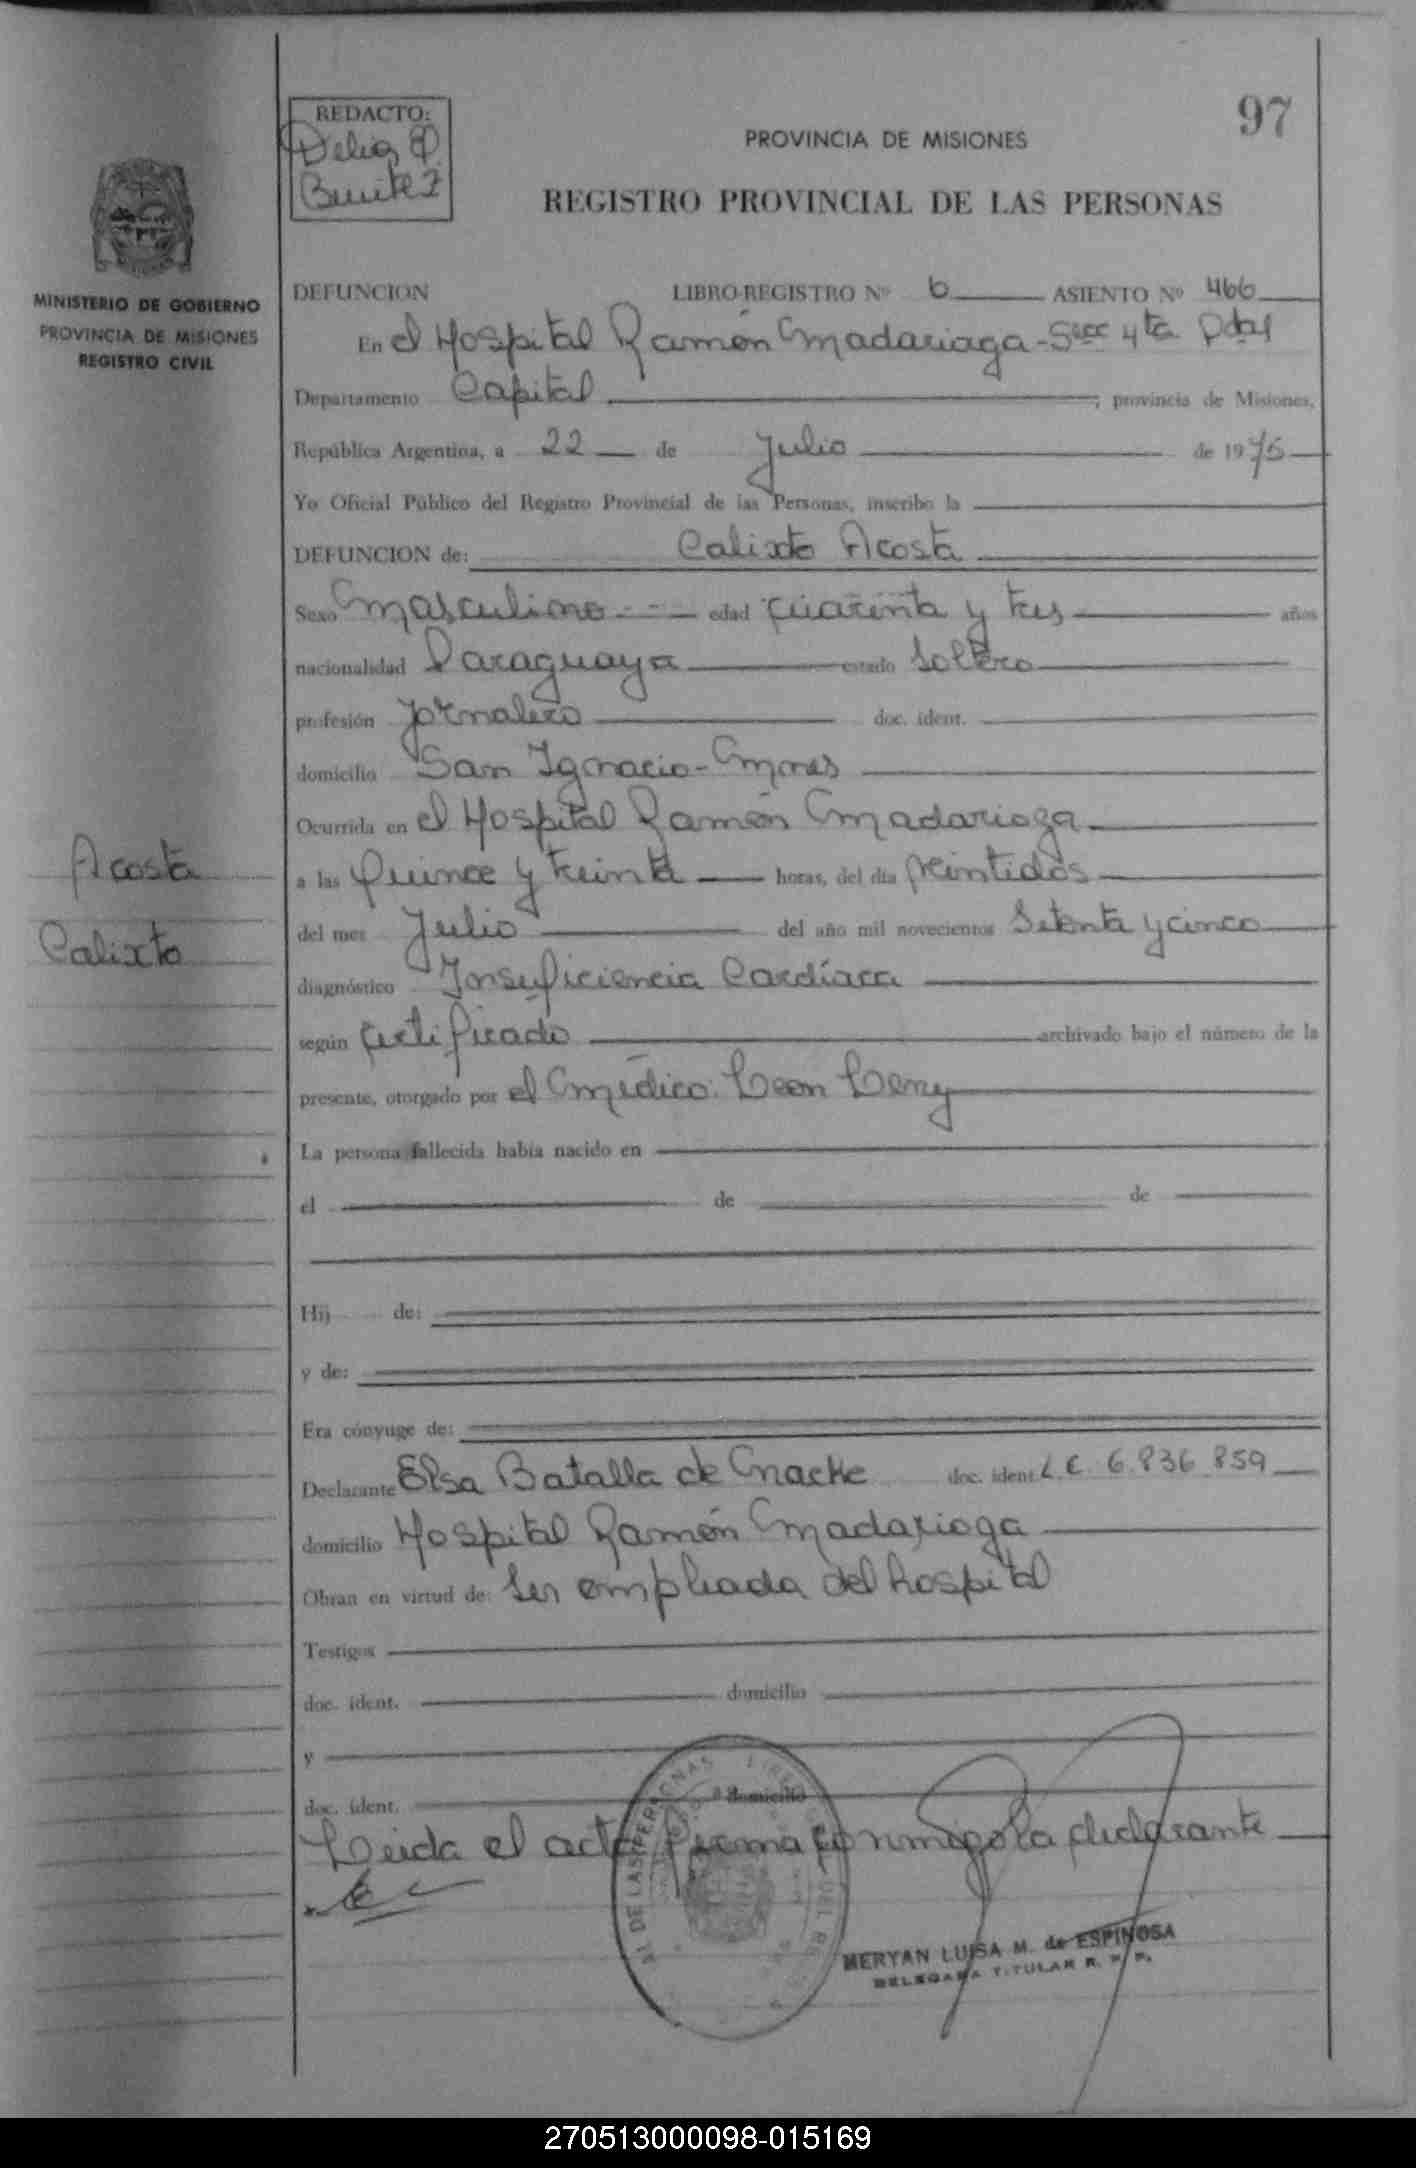 97
REDACTO:
Delia
Benitez
PROVINCIA DE MISIONES
REGISTRO PROVINCIAL DE LAS PERSONAS
MINISTERIO DE GOBIERNO
PROVINCIA DE MISIONES
REGISTRO CIVIL
DEFUNCION LIBRO-REGISTRO Nº 6 ASIENTO Nº 466
En el Hospital Ramón Madariaga - Secc 4ta Pdas
Departamento Capital ; provincia de Misiones,
República Argentina, a 22 de Julio de 1975
Yo Oficial Público del Registro Provincial de las Personas, inscribo la
DEFUNCION de: Calixto Acosta
Sexo Masculino edad cuarenta y tres años
nacionalidad Paraguaya estado Soltero
profesión Jornalero doc. ident.
domicilio San Ignacio - Mnes
Ocurrida en el Hospital Ramón Madariaga
a las quince y treinta horas, del día veintidos
del mes Julio del año mil novecientos Setenta y cinco
diagnóstico Insuficiencia Cardíaca
según certificado archivado bajo el número de la
presente, otorgado por el médico: Leon Leny
La persona fallecida había nacido en
el de de
Hij de:
y de:
Era cónyuge de:
Declarante Elsa Batalla de Macke doc. ident. L.C. 6.836.859
domicilio Hospital Ramón Madariaga
Obran en virtud de: Ser empleada del hospital
Testigos
doc. ident. domicilio
y
doc. ident. domicilio
Leida el acta firma conmigo la declarante
Acosta
Calixto
MERYAN LUISA M. de ESPINOSA
DELEGADA TITULAR R. P. P.
270513000098-015169